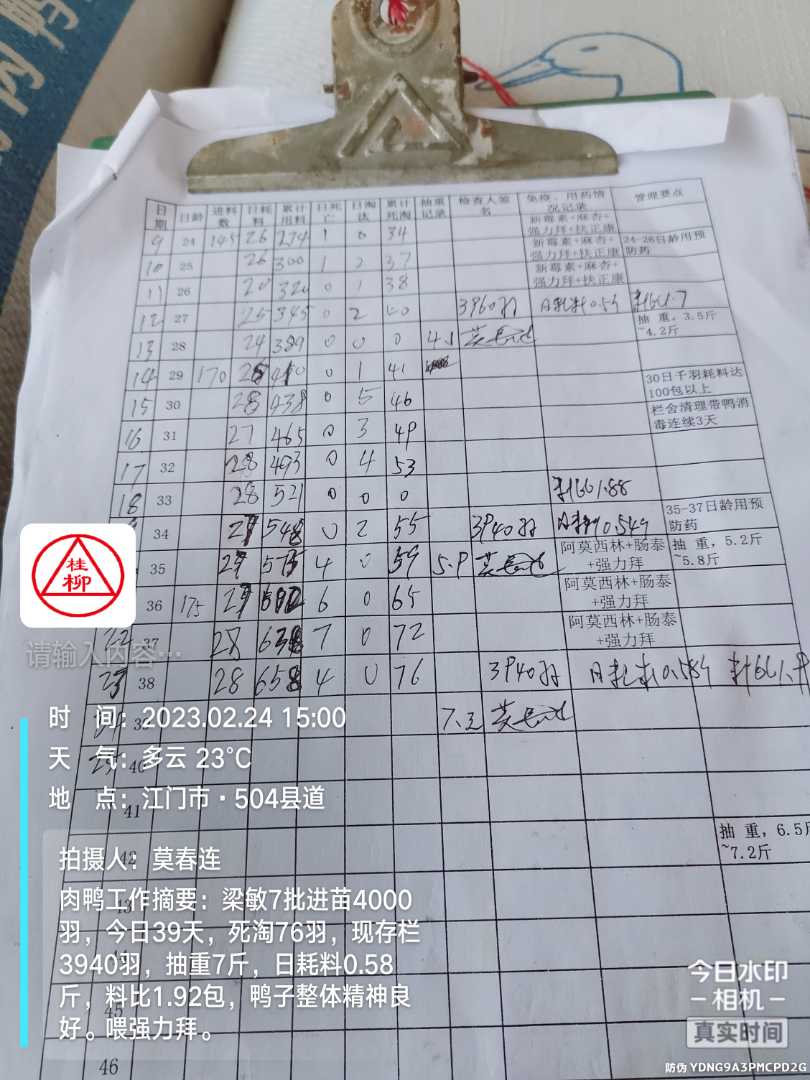 肉鸭
日期 日龄 进料数 日耗料 累计用料 日死亡 日淘汰 累计死淘 抽重记录 检查人签名 免疫、用药情况记录 管理要点
9 24 145 26 274 1 0 34 新霉素+麻杏+强力拜+扶正康 24-26日龄用预防药
10 25 26 300 1 2 37 新霉素+麻杏+强力拜+扶正康
11 26 20 320 0 1 38 新霉素+麻杏+强力拜+扶正康
12 27 25 345 0 2 40 3960羽 日耗料0.55 料比1.7
13 28 24 389 0 0 0 4.1 抽重，3.5斤~4.2斤
14 29 170 0 1 41
15 30 28 438 0 5 46 30日千羽耗料达100包以上
16 31 27 465 0 3 49 栏舍清理带鸭消毒连续3天
17 32 28 493 0 4 53
18 33 28 521 0 0 0 料比1.88
34 548 0 2 55 3940羽 日耗料0.549 35-37日龄用预防药
35 4 0 59 5.9 阿莫西林+肠泰+强力拜 抽重，5.2斤~5.8斤
36 175 6 0 65 阿莫西林+肠泰+强力拜
22 37 28 7 0 72 阿莫西林+肠泰+强力拜
23 38 28 658 4 0 76 3940羽 日耗料0.589
39
40
41
42 抽重，6.5斤~7.2斤
43
44
45
46
桂柳
请输入内容…
时 间：2023.02.24 15:00
天 气：多云 23℃
地 点：江门市·504县道
拍摄人：莫春连
肉鸭工作摘要：梁敏7批进苗4000
羽，今日39天，死淘76羽，现存栏
3940羽，抽重7斤，日耗料0.58
斤，料比1.92包，鸭子整体精神良
好。喂强力拜。
今日水印
相机
真实时间
防伪 YDNG9A3PMCPD2C